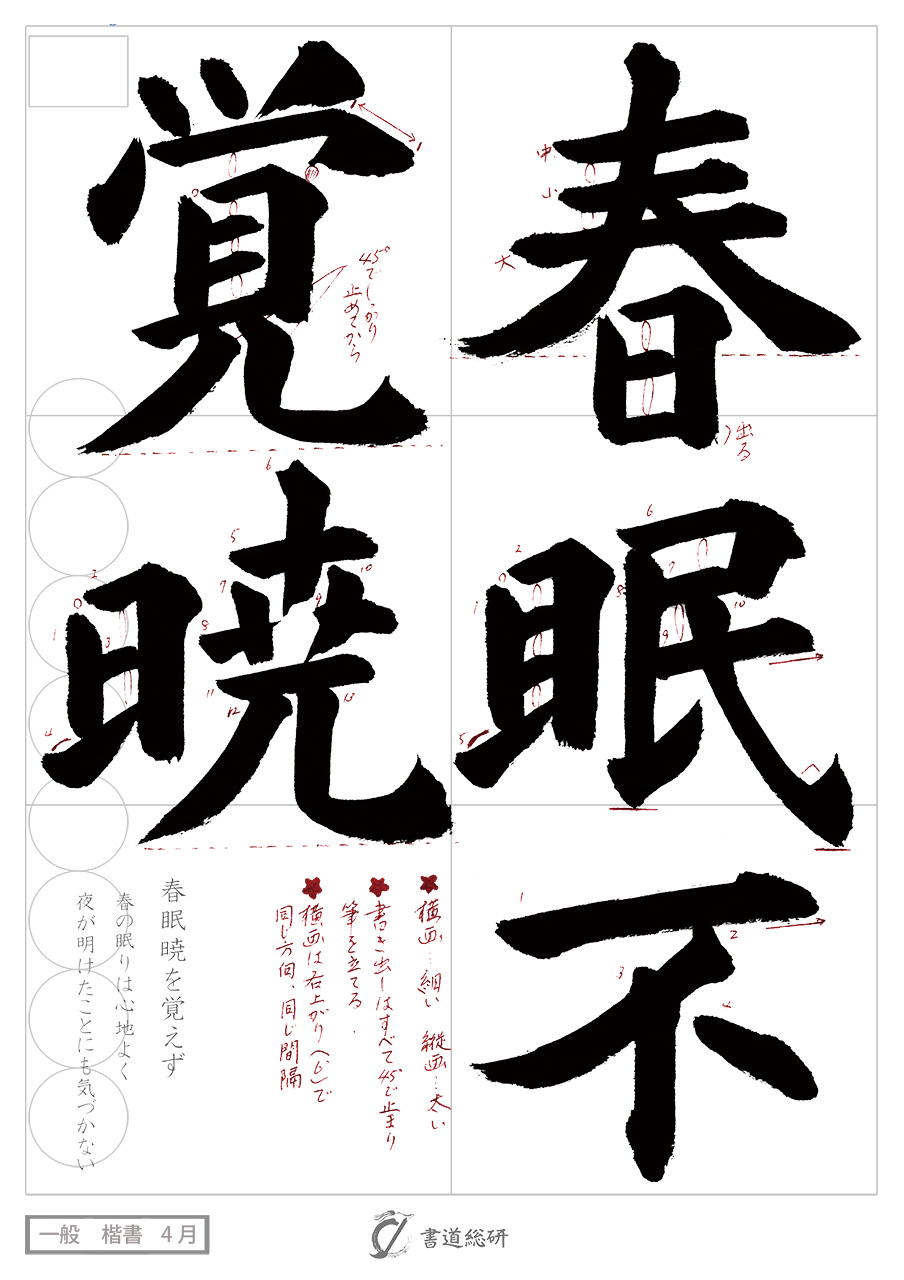 春眠不
覚暁
中
小
大
出る
45°でしっかり
止めてから
★横画…細い 縦画…太い
★書き出しはすべて45°で止まり
筆を立てる.
★横画は右上がり(6°)で
同じ方向、同じ間隔
春眠暁を覚えず
春の眠りは心地よく
夜が明けたことにも気づかない
一般 楷書 4月
書道総研